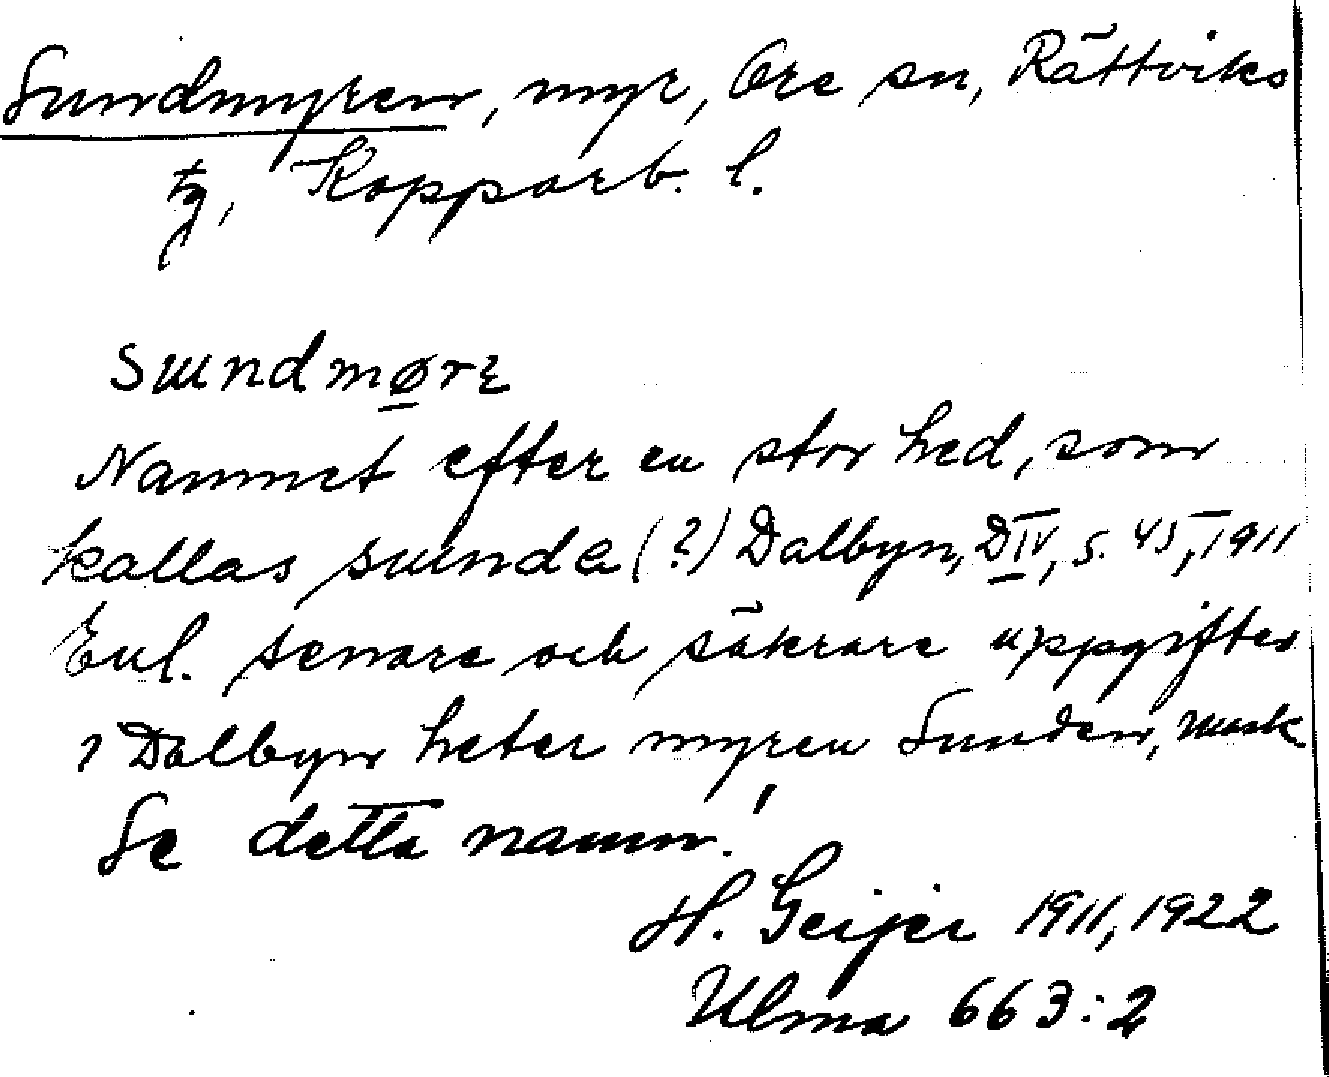 Sundmyren, myr, Ore sn, Rättviks
tg, Kopparb. l.
sɯndmørɛ
Namnet efter en stor hed, som
kallas sɯnda (?) Dalbyn, DIV, s. 45, 1911
Enl. senare och säkrare uppgifter
i Dalbyn heter myren Sunden, mask.
Se detta namn!
H. Geijer 1911, 1922
Ulma 663:2